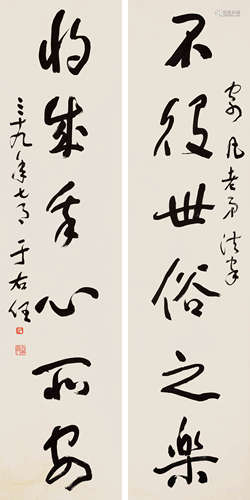 凡老弟法家
不役世俗之樂
將成
心所安
三十九年七月 于右任